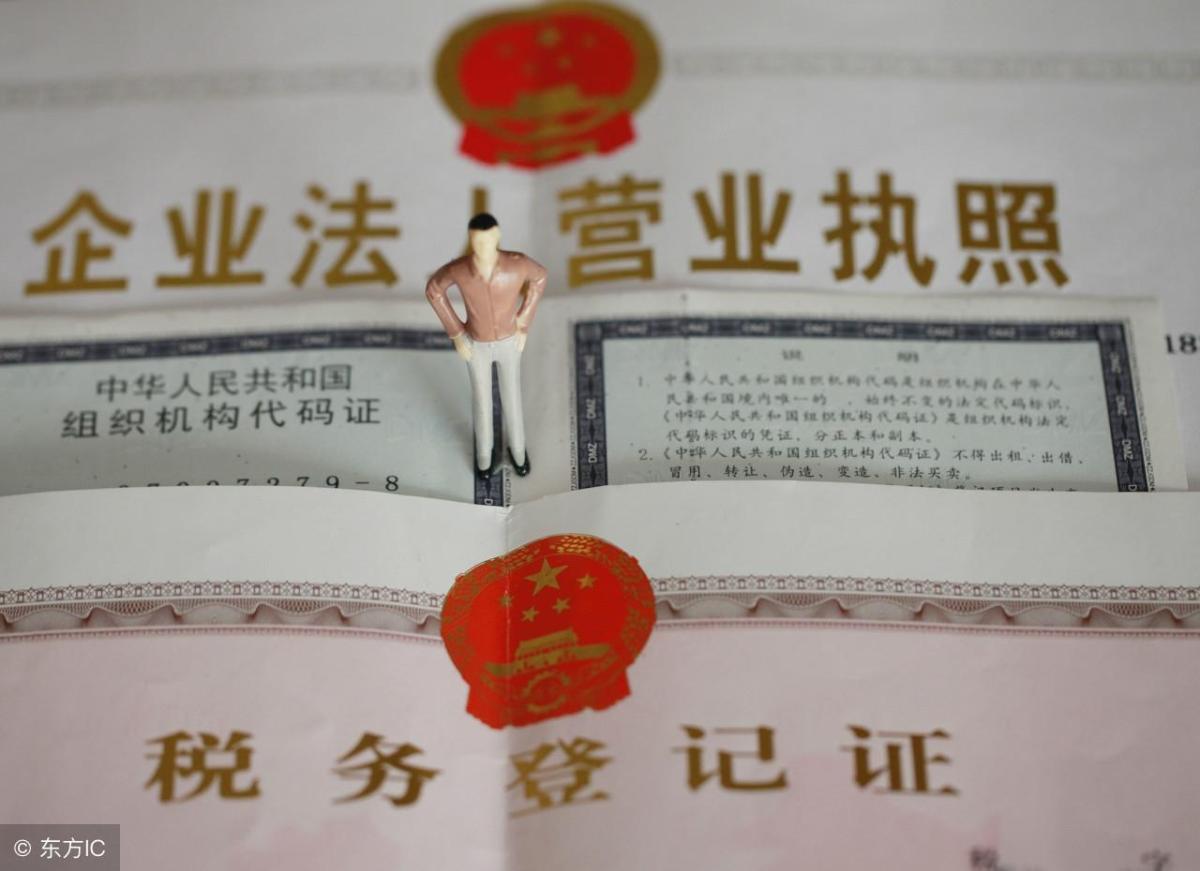 企业法人营业执照
中华人民共和国
组织机构代码证
7279-8
说 明
1. 中华人民共和国组织机构代码是组织机构在中华人
民共和国境内唯一的 、始终不变的法定代码标识,
《中华人民共和国组织机构代码证》是组织机构法定
代码标识的凭证,分正本和副本。
2.《中华人民共和国组织机构代码证》不得出租、出借、
冒用、转让、伪造、变造、非法买卖。
18
税务登记证
字
© 东方IC